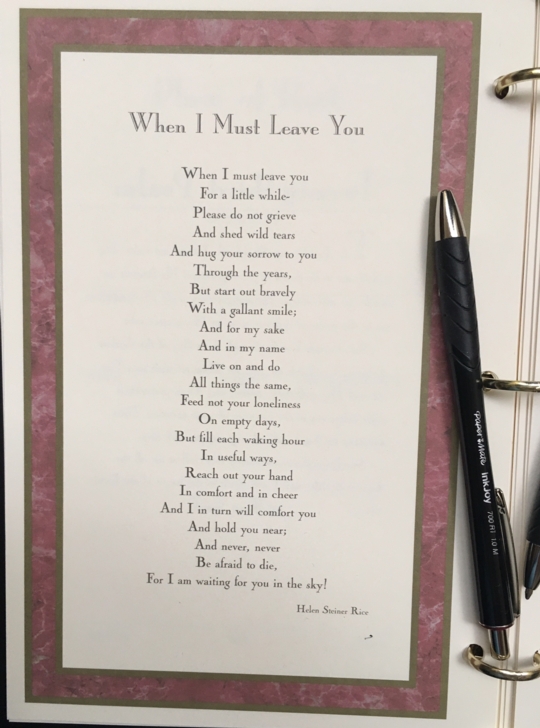 When I Must Leave You
When I must leave you
For a little while-
Please do not grieve
And shed wild tears
And hug your sorrow to you
Through the years,
But start out bravely
With a gallant smile;
And for my sake
And in my name
Live on and do
All things the same,
Feed not your loneliness
On empty days,
But fill each waking hour
In useful ways,
Reach out your hand
In comfort and in cheer
And I in turn will comfort you
And hold you near;
And never, never
Be afraid to die,
For I am waiting for you in the sky!
Helen Steiner Rice
Paper Mate InkJoy 700 RT 1.0 M